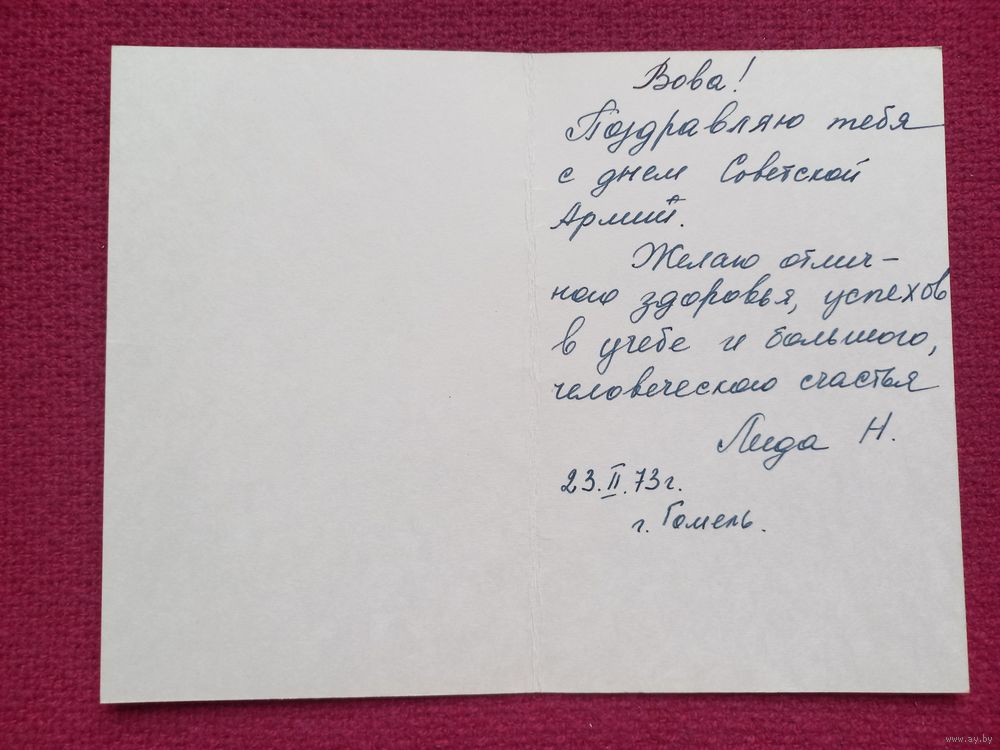 Вова!
Поздравляю тебя
с днем Советской
Армии.
Желаю отлич-
ного здоровья, успехов
в учебе и большого,
человеческого счастья
Лида Н.
23.II.73г.
г. Гомель.
www.ay.by